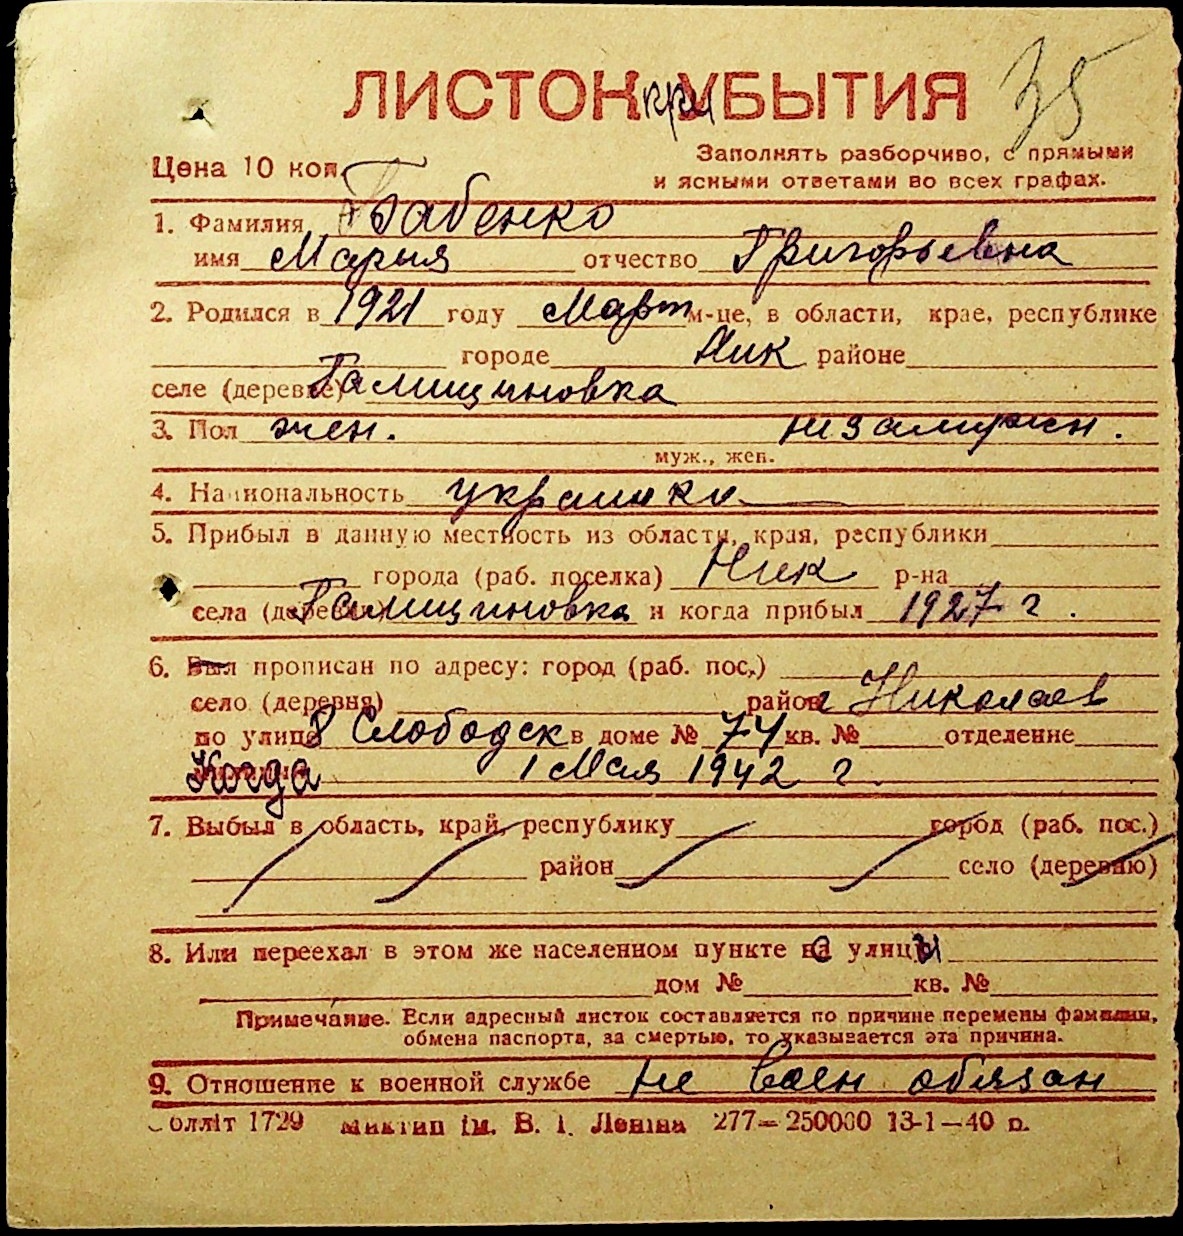 ЛИСТОК при УБЫТИЯ
35
Цена 10 коп.
Заполнять разборчиво, с прямыми
и ясными ответами во всех графах.
1. Фамилия Бабенко
имя Марыя отчество Григорьевна
2. Родился в 1921 году Март м-це, в области, крае, республике
городе Ник районе
селе (деревне) Галициновка
3. Пол жен. незамужен.
муж., жен.
4. Национальность украинка
5. Прибыл в данную местность из области, края, республики
города (раб. поселка) Ник р-на
села (деревни) Галициновка и когда прибыл 1927 г.
6. Был прописан по адресу: город (раб. пос.)
село (деревня) район г Николаев
по улице 8 Слободск в доме № 74 кв. № отделение
Когда 1 Мая 1942 г.
7. Выбыл в область, край, республику город (раб. пос.)
район село (деревню)
8. Или переехал в этом же населенном пункте с улицы
дом № кв. №
Примечание. Если адресный листок составляется по причине перемены фамилии,
обмена паспорта, за смертью, то указывается эта причина.
9. Отношение к военной службе не воен обязан
олліт 1729 ім. В. І. Леніна 277—250000 13-1—40 р.